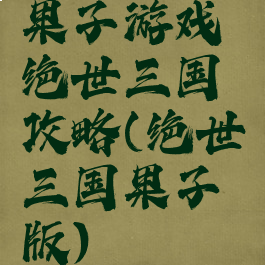 果子游戏
绝世三国
攻略(绝世
三国果子
版)